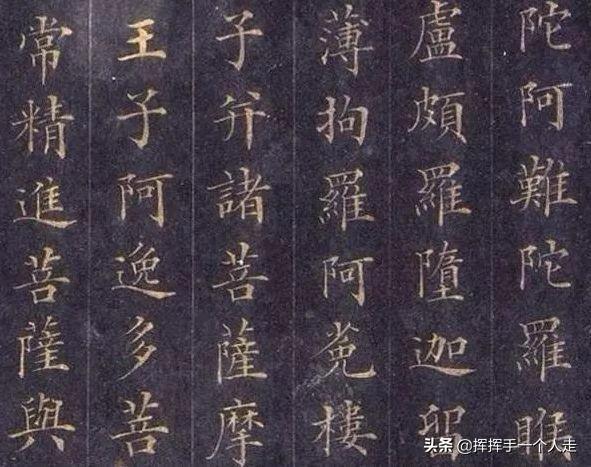 陀阿難陀羅睺
盧頗羅墮迦留
薄拘羅阿㝹樓
子并諸菩薩摩
王子阿逸多菩
常精進菩薩與
头条 @挥挥手一个人走